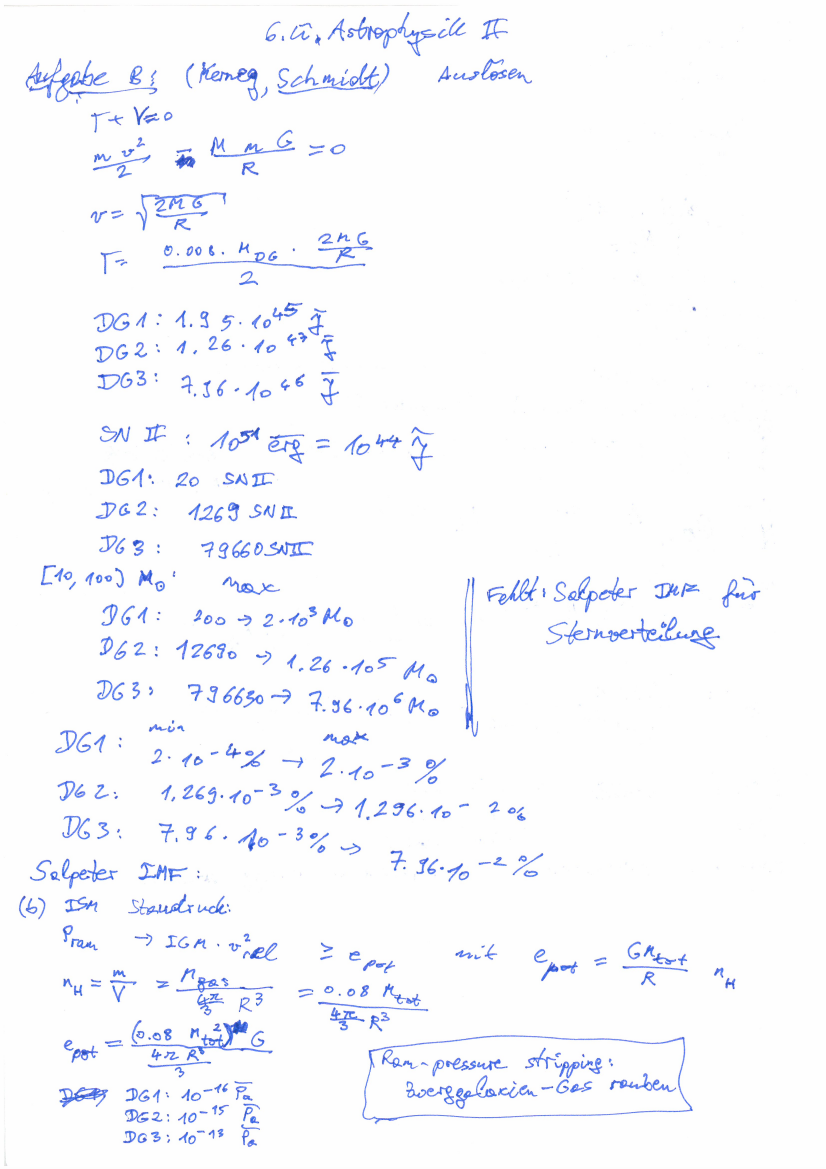 6. Ü. Astrophysik II
Aufgabe B: (Kerneg, Schmidt) Auslösen
T + V = 0
m v² / 2 - M m G / R = 0
v = √(2MG / R)
T = 0.008 · M_DG · 2MG/R / 2
DG1: 1.95·10^45 J
DG2: 1.26·10^47 J
DG3: 7.96·10^46 J
SN II : 10^51 erg = 10^44 J
DG1: 20 SN II
DG2: 1269 SN II
DG3: 79660 SN II
[10, 100] M⊙: max
DG1: 200 → 2·10³ M⊙
DG2: 12690 → 1.26·10^5 M⊙
DG3: 796630 → 7.96·10^6 M⊙
Fehlt: Salpeter IMF für
Sternverteilung
min max
DG1: 2·10^-4 % → 2·10^-3 %
DG2: 1,269·10^-3 % → 1.296·10^-2 %
DG3: 7.96·10^-3 % → 7.96·10^-2 %
Salpeter IMF:
(b) ISM Staudruck:
P_ram → IGM · v²_rel ≥ e_pot mit e_pot = G M_tot / R n_H
n_H = m / V = M_gas / (4π/3 R³) = 0.08 M_tot / (4π/3 R³)
e_pot = (0.08 M²_tot) G / (4π R³ / 3)
DG1: 10^-16 Pa
DG2: 10^-15 Pa
DG3: 10^-13 Pa
Ram-pressure stripping:
Zwerggalaxien-Gas rauben